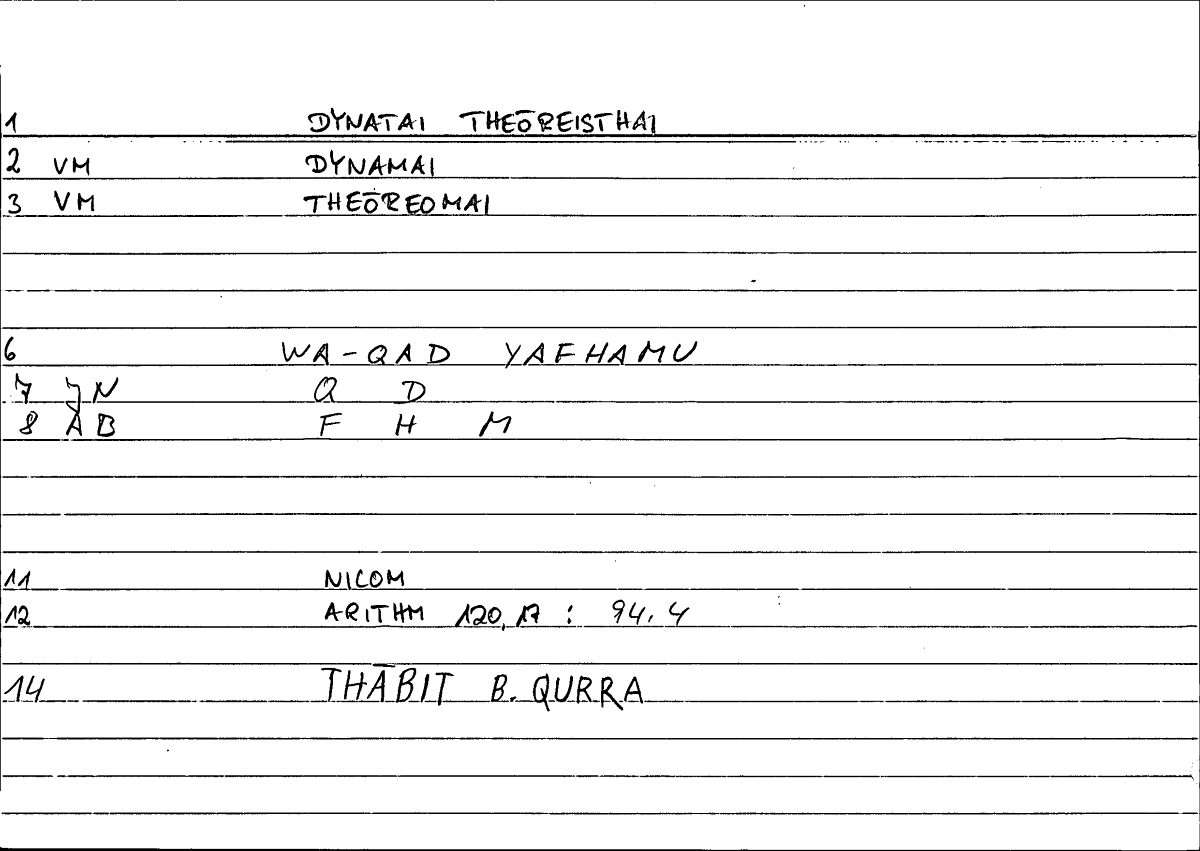 1 DYNATAI THEŌREISTHAI
2 VM DYNAMAI
3 VM THEŌREOMAI
6 WA-QAD YAFHAMU
7 JN Q D
8 AB F H M
11 NICOM
12 ARITHM 120,17 : 94,4
14 THĀBIT B. QURRA